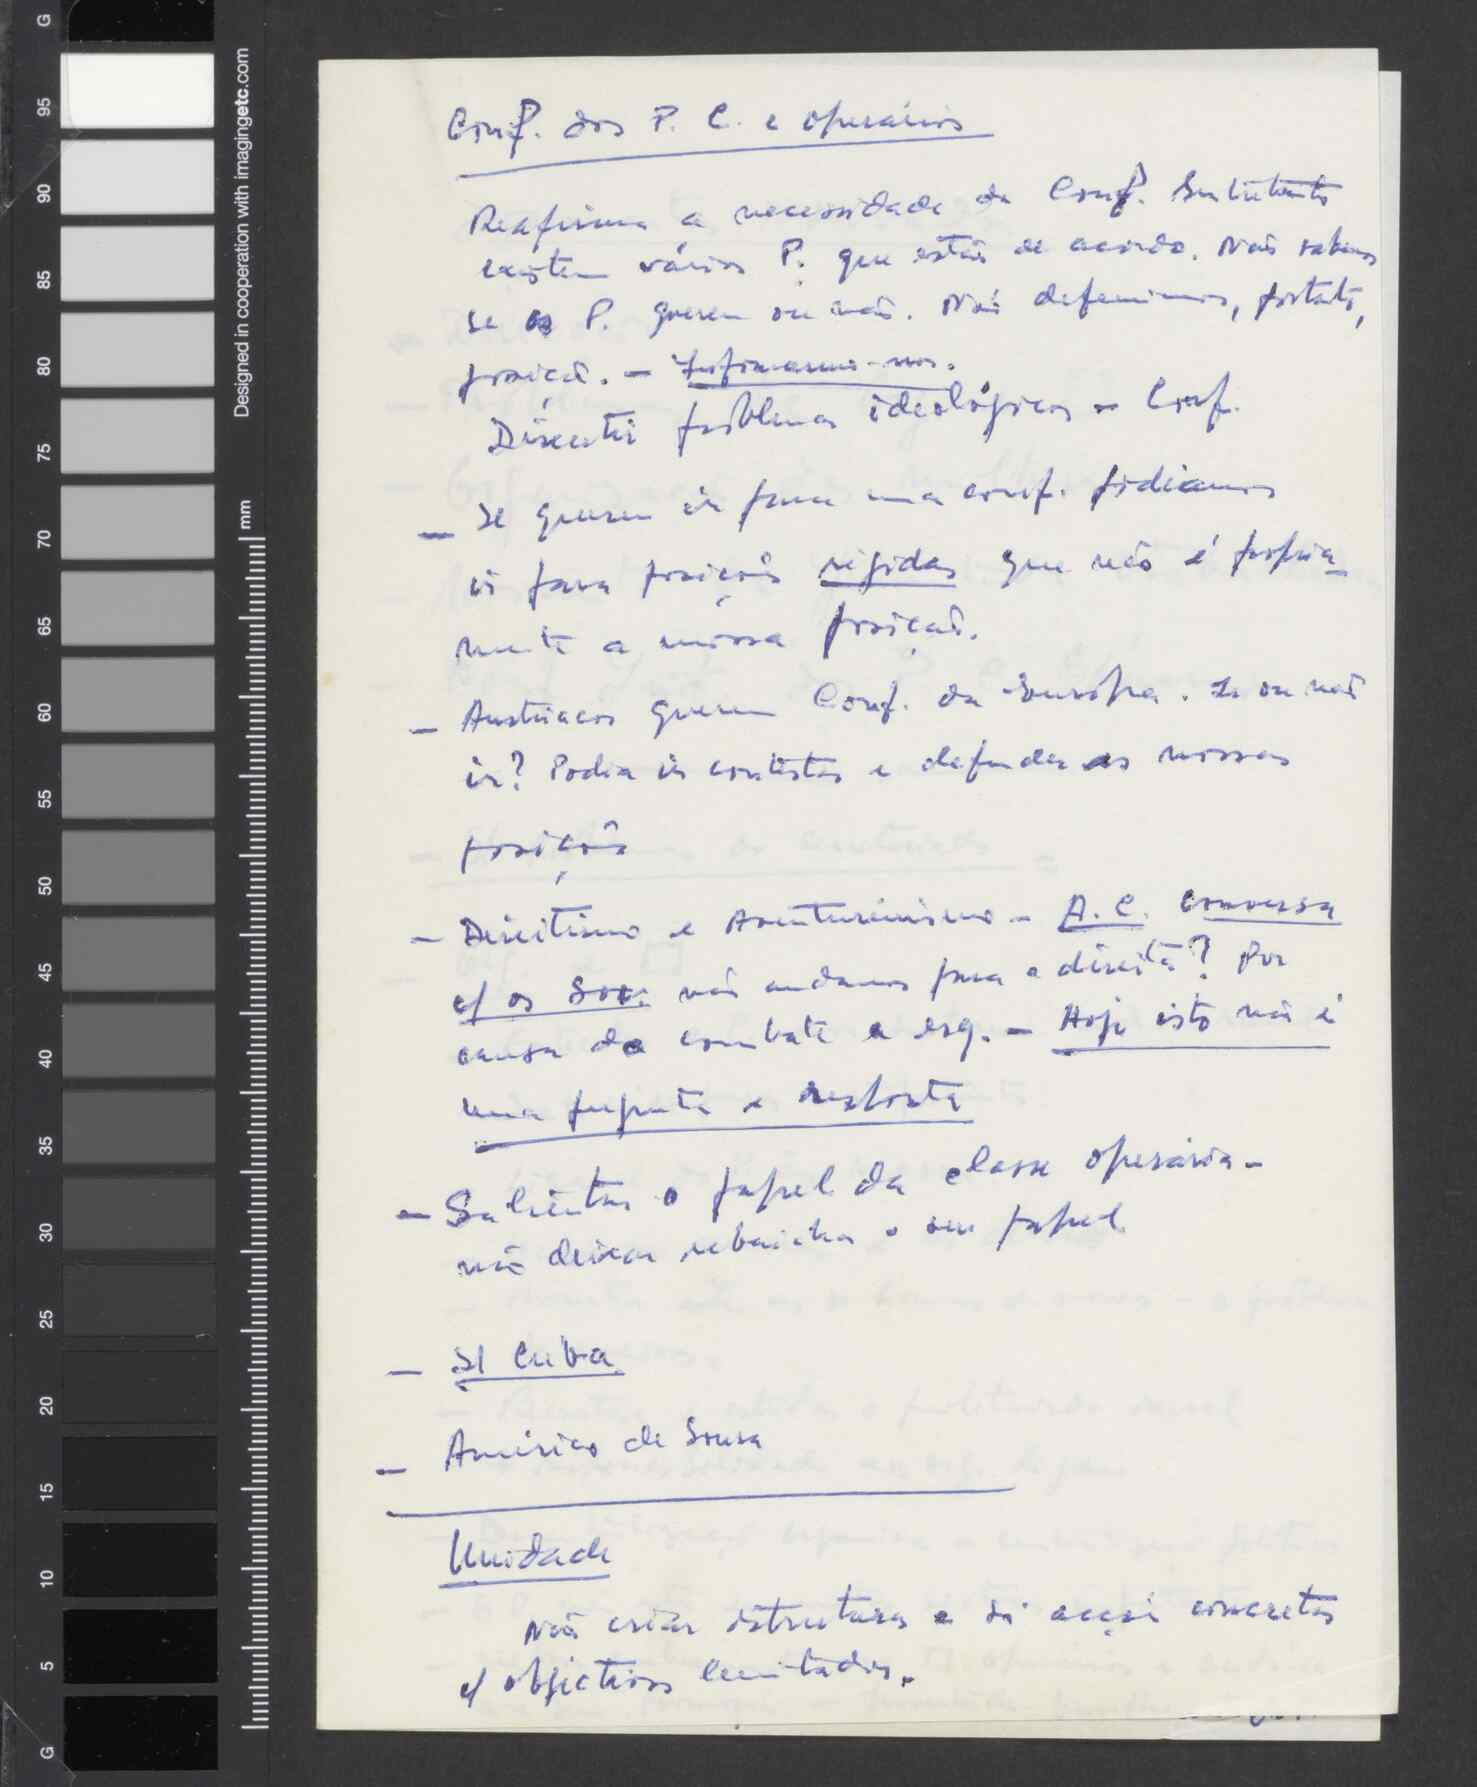 Conf. dos P. C. e operários
Reafirma a necessidade da Conf. Entretanto
existem vários P. que estão de acordo. Não sabemos
se os P. querem ou não. Nós defenimos, portanto,
posição. — Informarmo-nos.
Discutir problemas ideológicos na Conf.
— Se querem ir para uma conf. podiamos
ir para posições rigidas que não é propria-
mente a nossa posição.
— Austriacos querem Conf. da Europa. Ir ou não
ir? Podia ir contestar e defender as nossas
posições
— Direitismo e Aventureirismo — A. C. conversa
c/ os Sov. nós andamos para a direita? Por
causa do combate a esq. — Hoje isto não é
uma pergunta e resposta
— Salientar o papel da classe operária —
não deixar rebaixar o seu papel
— S/ Cuba
— Américo de Sousa
Unidade
Não criar estruturas e só acção concretas
c/ objectivos limitados.
Designed in cooperation with imagingetc.com
mm
G
95
90
85
80
75
70
65
60
55
50
45
40
35
30
25
20
15
10
5
G